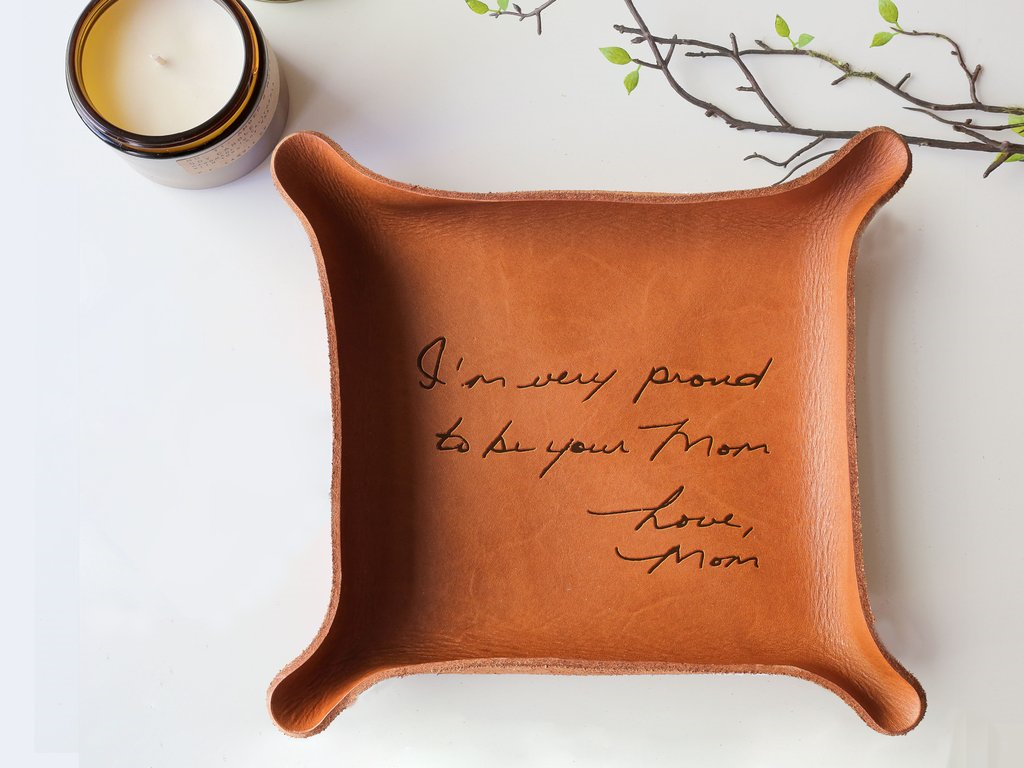 I'm very proud
to be your Mom
Love,
Mom